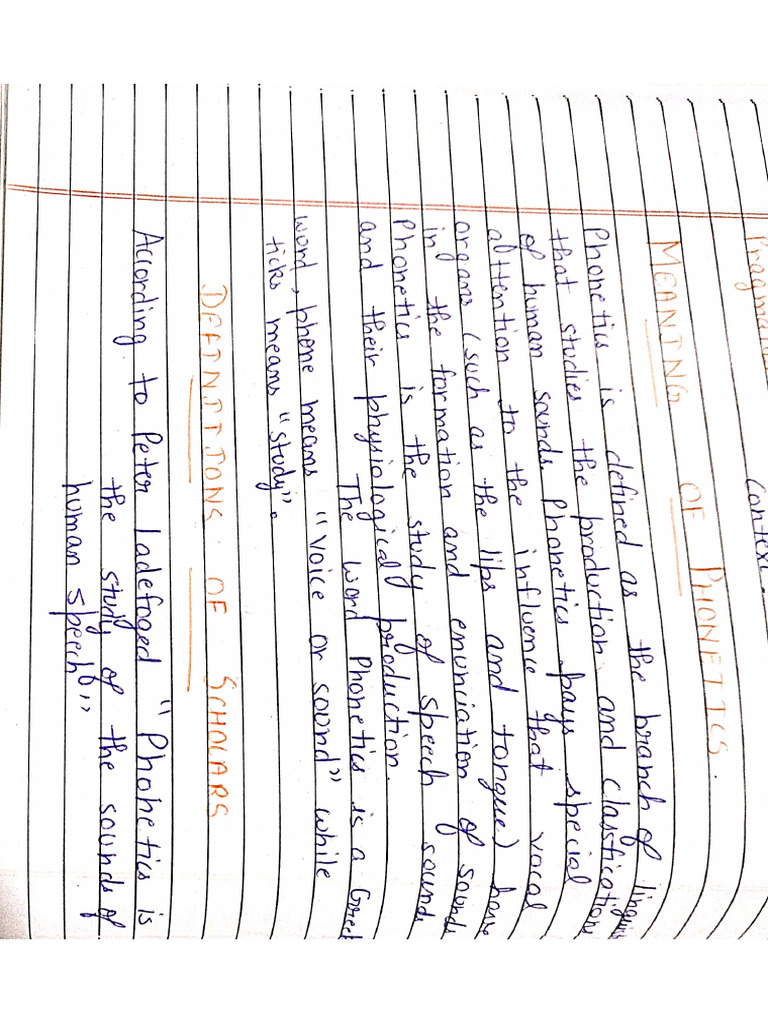 Context.
MEANING OF PHONETICS.
Phonetics is defined as the branch of
that studies the production and classfication
of human sounds. Phonetics pays special
alttention to the influence that vocal
organs (such as the lips and tongue) have
in the formation and enunciation of sounds
Phonetics is the study of speech sounds
and their physiological production.
The word Phonetics is a Greek
word, phone means "voice or sound" while
ticks means "study".
DEFINITIONS OF SCHOLARS
According to Peter ladefoged "Phonetics is
the study of the sounds of
human speech"